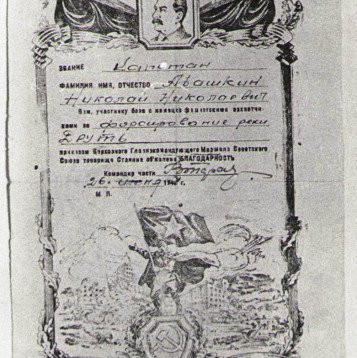 ЗВАНИЕ Капитан
ФАМИЛИЯ, ИМЯ, ОТЧЕСТВО Абашкин
Николай Николаевич
Вам, участнику боев с немецко-фашистскими захватчи-
ками за форсирование реки
Друть
приказом Верховного Главнокомандующего Маршала Советского
Союза товарища Сталина объявлена БЛАГОДАРНОСТЬ
Командир части
26 июня 194 г.
М. П.